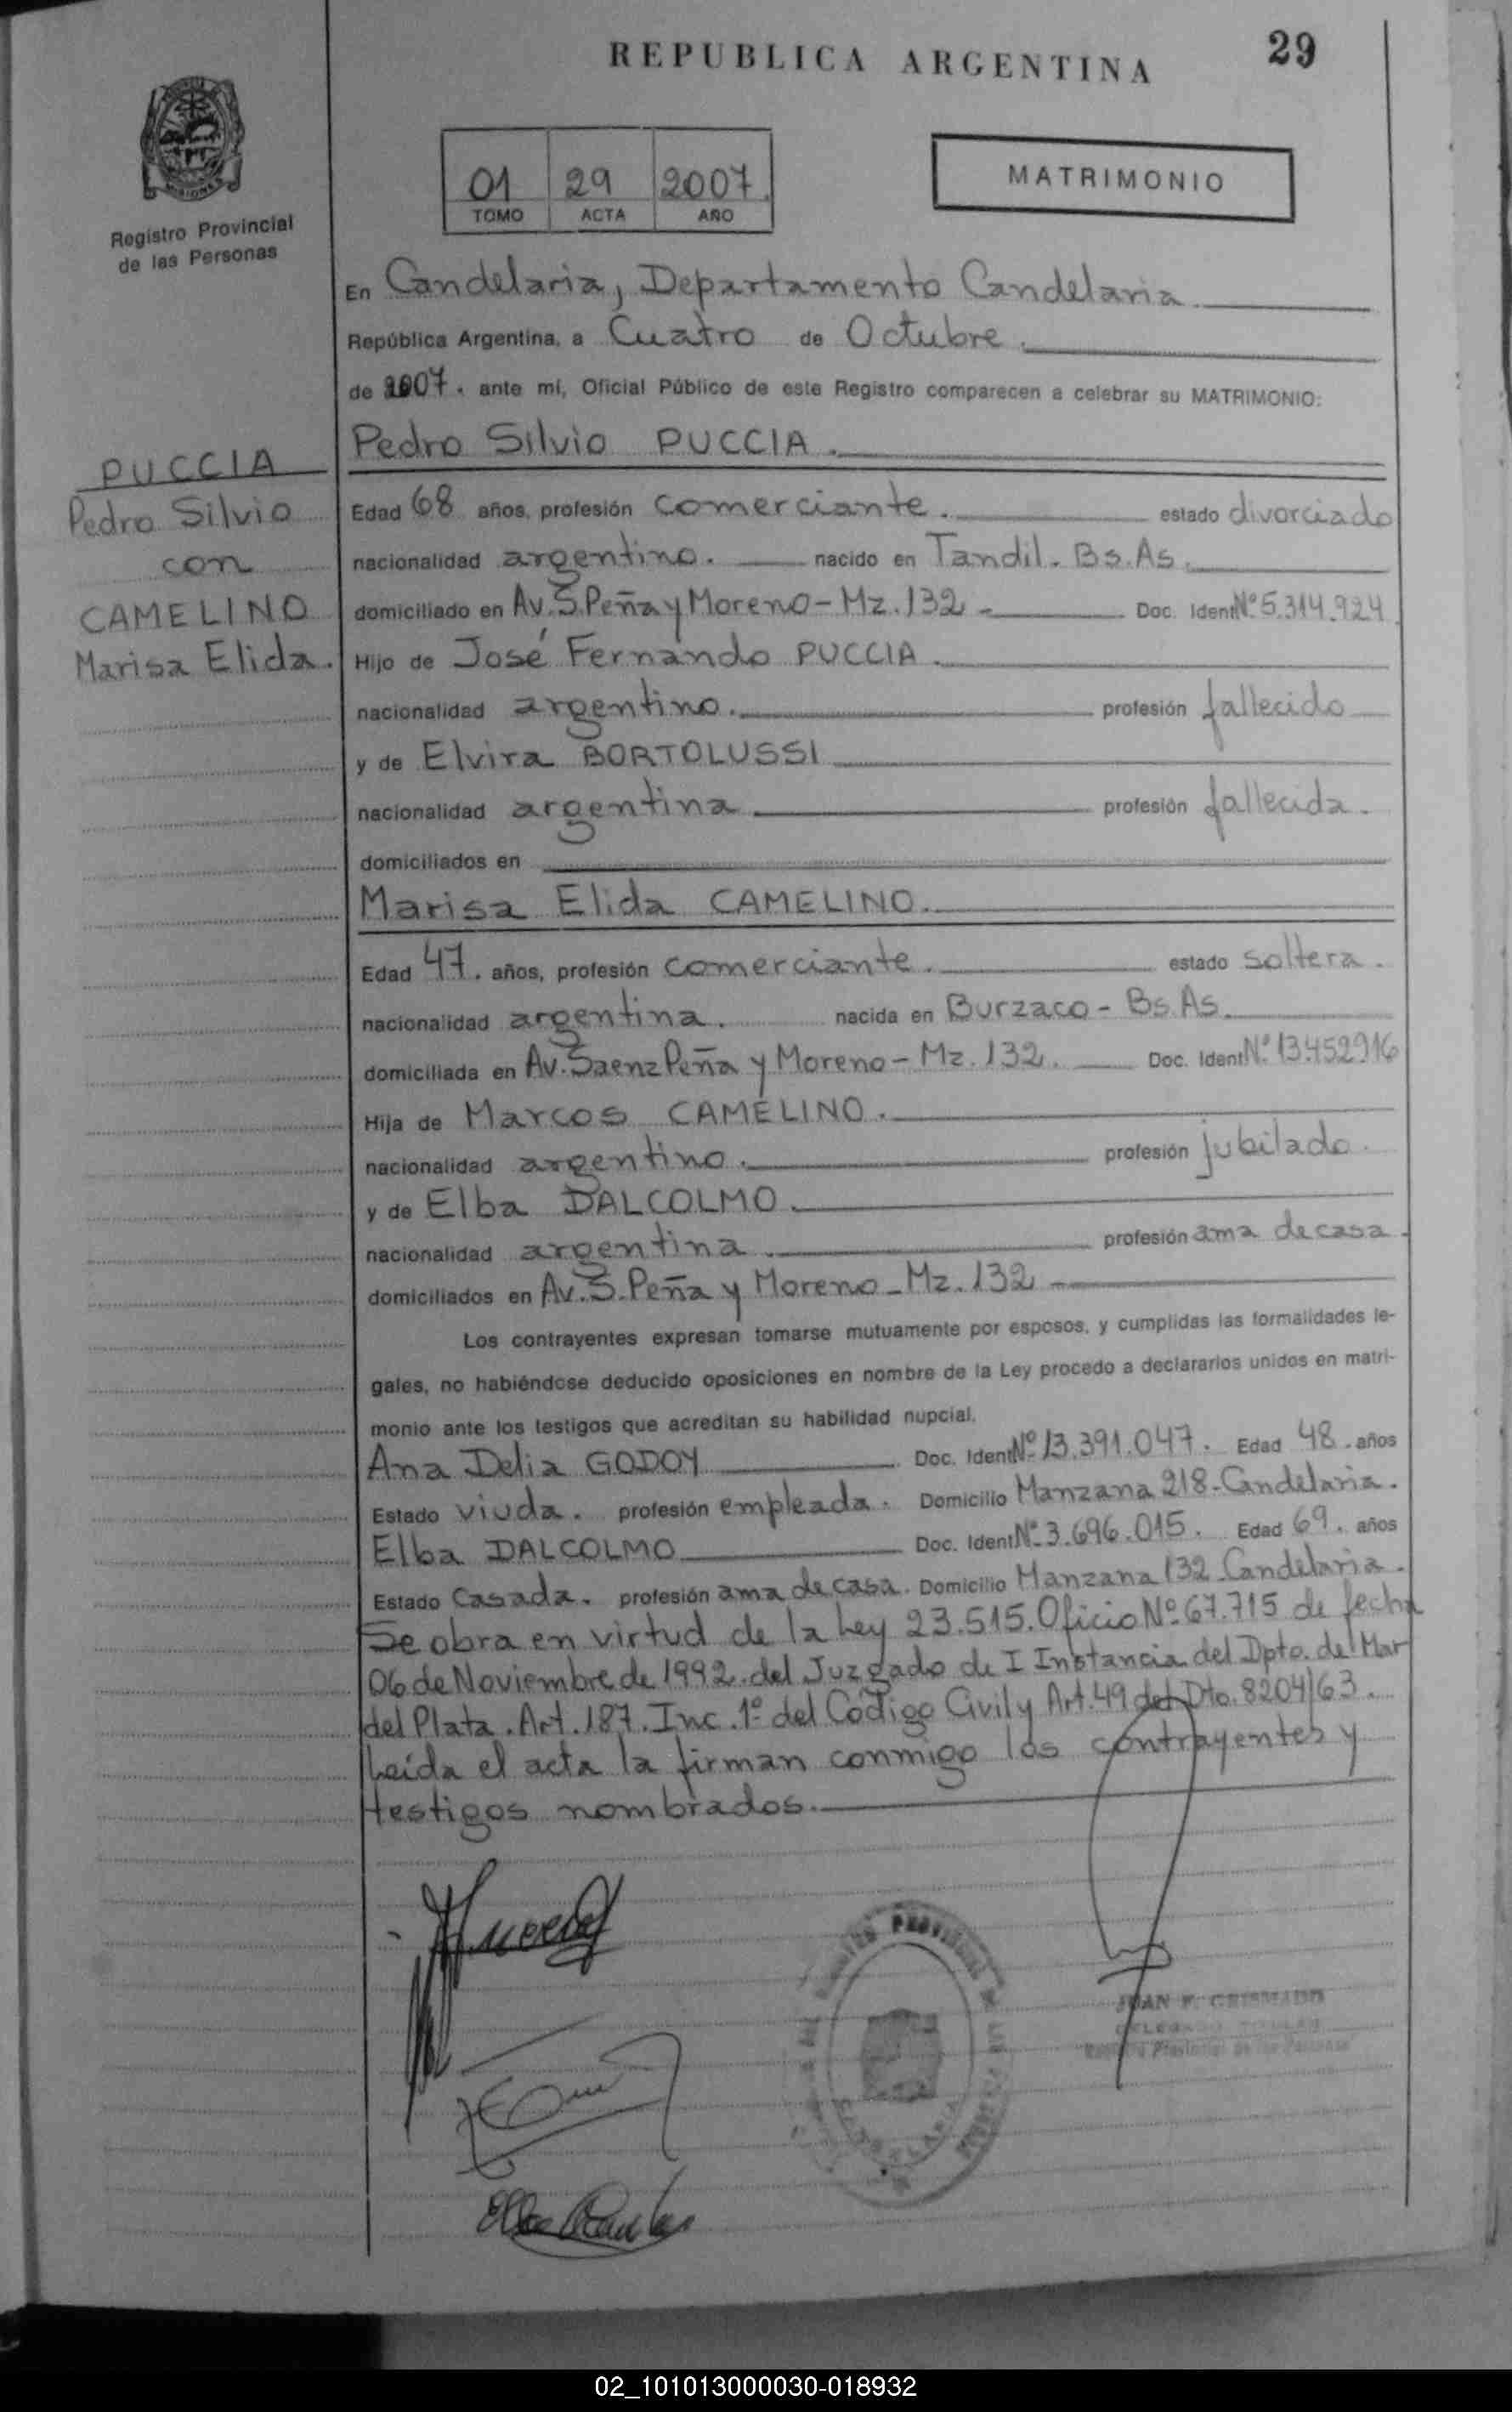 REPUBLICA ARGENTINA
29
MISIONES
Registro Provincial
de las Personas
01 29 2007.
TOMO ACTA AÑO
MATRIMONIO
En Candelaria, Departamento Candelaria
República Argentina, a Cuatro de Octubre.
de 2007. ante mí, Oficial Público de este Registro comparecen a celebrar su MATRIMONIO:
Pedro Silvio PUCCIA.
PUCCIA
Pedro Silvio
con
CAMELINO
Marisa Elida.
Edad 68 años, profesión comerciante. estado divorciado
nacionalidad argentino. nacido en Tandil. Bs.As.
domiciliado en Av. S. Peña y Moreno - Mz. 132 - Doc. Ident. Nº 5.314.924
Hijo de José Fernando PUCCIA.
nacionalidad argentino. profesión fallecido
y de Elvira BORTOLUSSI
nacionalidad argentina profesión fallecida.
domiciliados en
Marisa Elida CAMELINO.
Edad 47. años, profesión comerciante. estado soltera.
nacionalidad argentina. nacida en Burzaco - Bs As.
domiciliada en Av. Saenz Peña y Moreno - Mz. 132. Doc. Ident. Nº 13.452.916
Hija de Marcos CAMELINO.
nacionalidad argentino. profesión jubilado.
y de Elba DALCOLMO.
nacionalidad argentina. profesión ama de casa.
domiciliados en Av. S. Peña y Moreno - Mz. 132
Los contrayentes expresan tomarse mutuamente por esposos, y cumplidas las formalidades le-
gales, no habiéndose deducido oposiciones en nombre de la Ley procedo a declararlos unidos en matri-
monio ante los testigos que acreditan su habilidad nupcial.
Ana Delia GODOY Doc. Ident. Nº 13.391.047. Edad 48. años
Estado viuda. profesión empleada. Domicilio Manzana 218-Candelaria.
Elba DALCOLMO Doc. Ident. Nº 3.696.015. Edad 69. años
Estado Casada. profesión ama de casa. Domicilio Manzana 132-Candelaria.
Se obra en virtud de la Ley 23.515. Oficio Nº 67.715 de fecha
06 de Noviembre de 1992. del Juzgado de I Instancia del Dpto. de Mar
del Plata. Art. 187. Inc. 1º del Código Civil y Art. 49 del Dto. 8204/63.
Leída el acta la firman conmigo los contrayentes y
testigos nombrados.
CANDELARIA
JUAN F. GRISMADO
DELEGADO TITULAR
Registro Provincial de las Personas
02_101013000030-018932